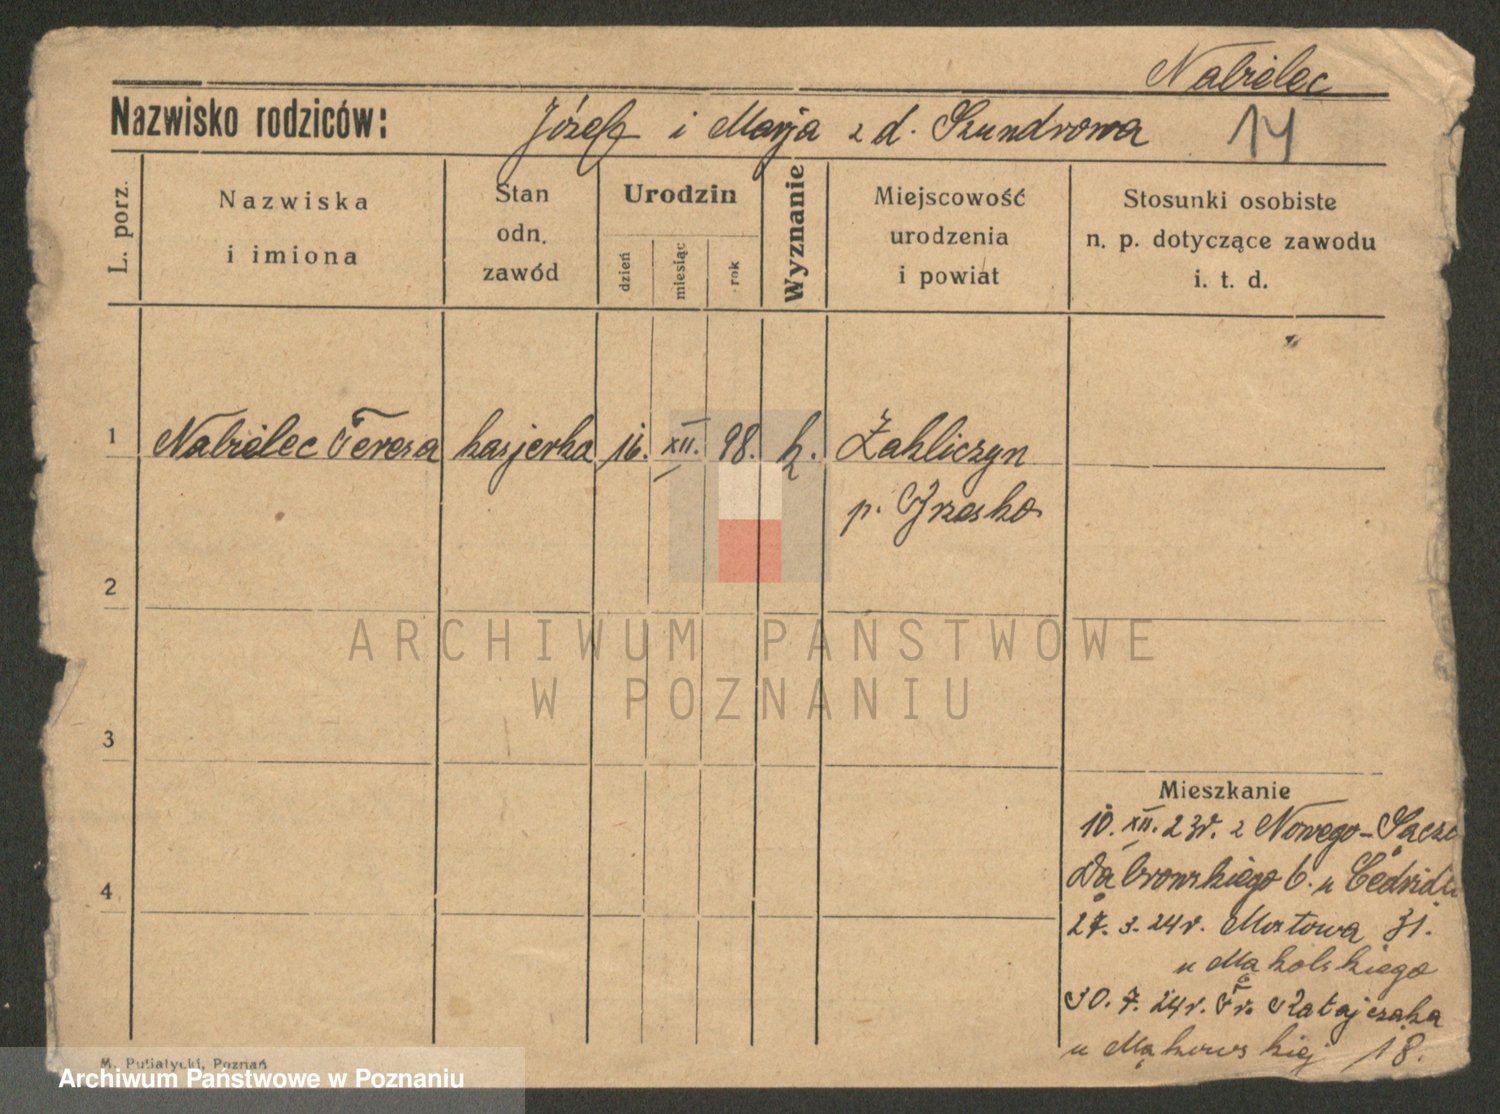 Nabielec
Nazwisko rodziców: Józef i Marja z d. Szundrowa 14
L. porz.
Nazwiska
i imiona
Stan
odn.
zawód
Urodzin
dzień
miesiąc
rok
Wyznanie
Miejscowość
urodzenia
i powiat
Stosunki osobiste
n. p. dotyczące zawodu
i. t. d.
1 Nabielec Teresa kasjerka 16. XII. 98. k. Zakliczyn
p. Brzesko
2
3
4
Mieszkanie
10. XII. 23r. z Nowego-Sącza
Dąbrowskiego 6. u
27. 3. 24r. Mostowa 31.
u Mąkolskiego
30. 7. 24r. Fr. Ratajczaka
u Mąkowskiej 18.
M. Putiatycki, Poznań
ARCHIWUM PAŃSTWOWE
W POZNANIU
Archiwum Państwowe w Poznaniu